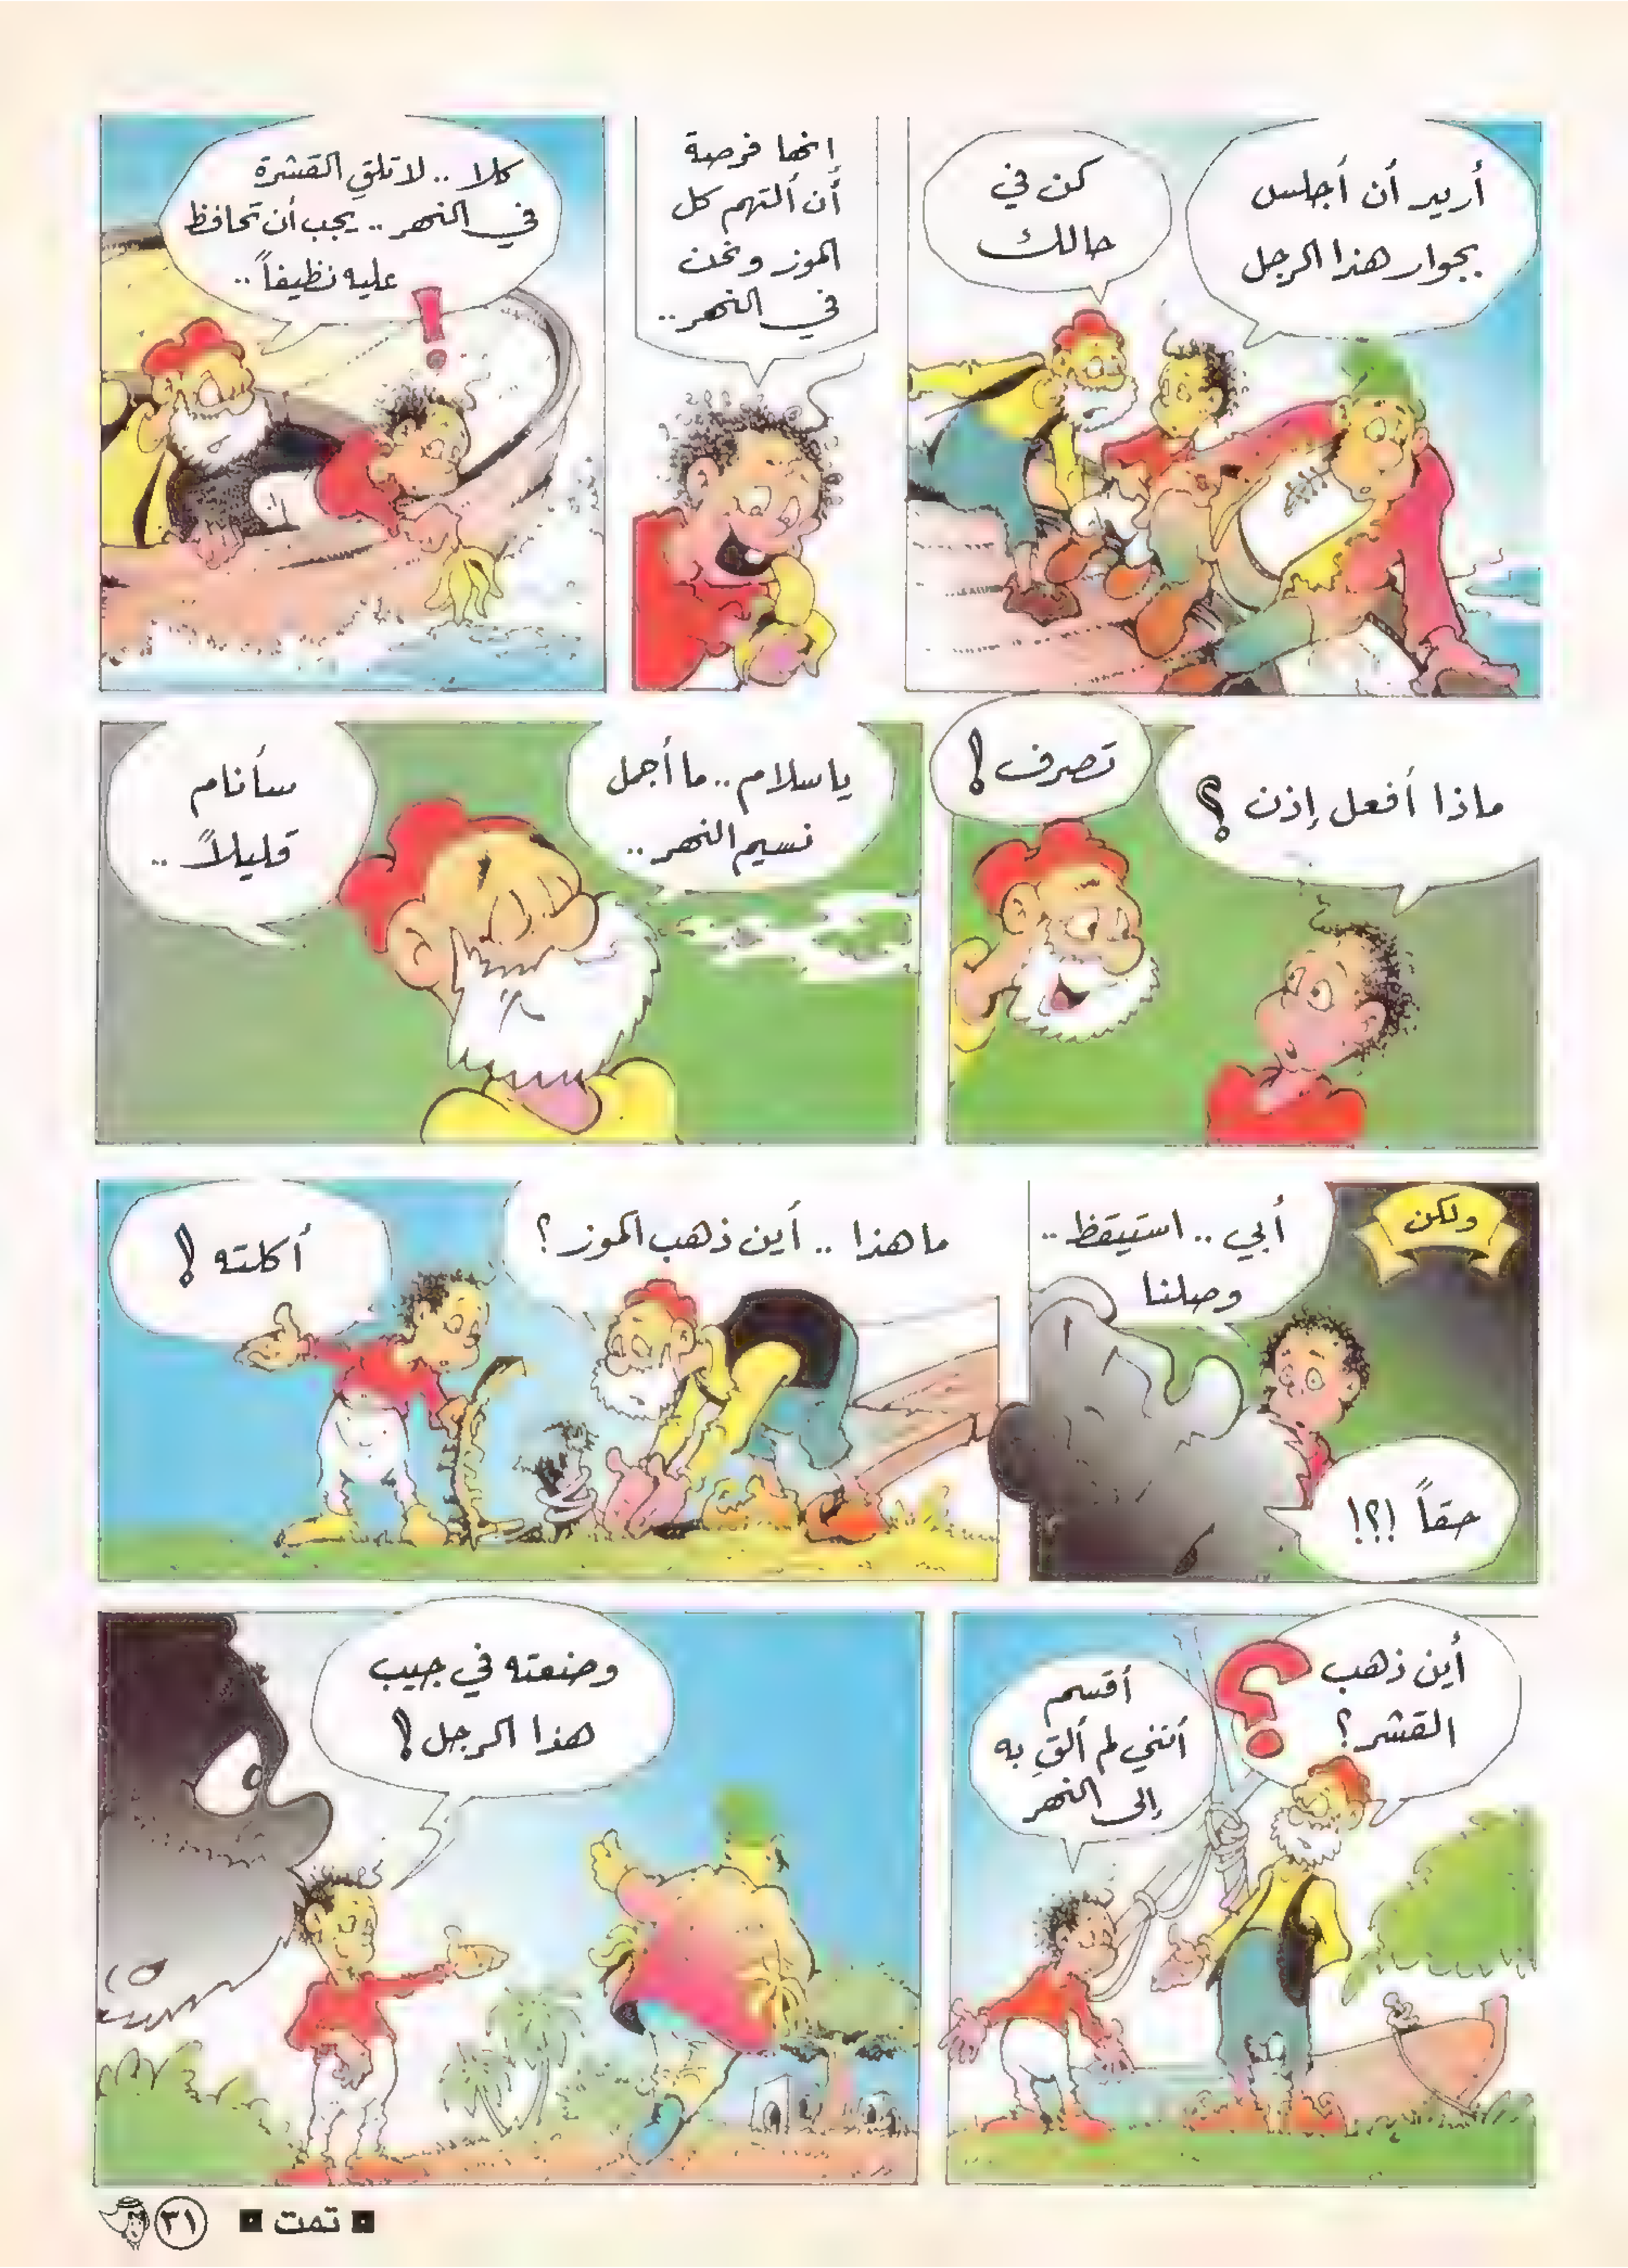 أريد أن أجلس
بجوار هذا الرجل
كن في
حالك
إنها فرصة
أن ألتهم كل
الموز ونحن
في النهر..
كلا .. لا تلقِ القشرة
في النهر .. يجب أن تحافظ
عليه نظيفاً ..
!
ماذا أفعل إذن ؟
تصرف !
ياسلام .. ما أجمل
نسيم النهر ..
سأنام
قليلاً ..
ولكن
أبي .. استيقظ ..
وصلنا
حقاً !؟!
ما هذا .. أين ذهب الموز ؟
أكلته !
أين ذهب
القشر ؟
?
أقسم
أنني لم ألقِ به
إلى النهر
وضعته في جيب
هذا الرجل !
تمت
٣١